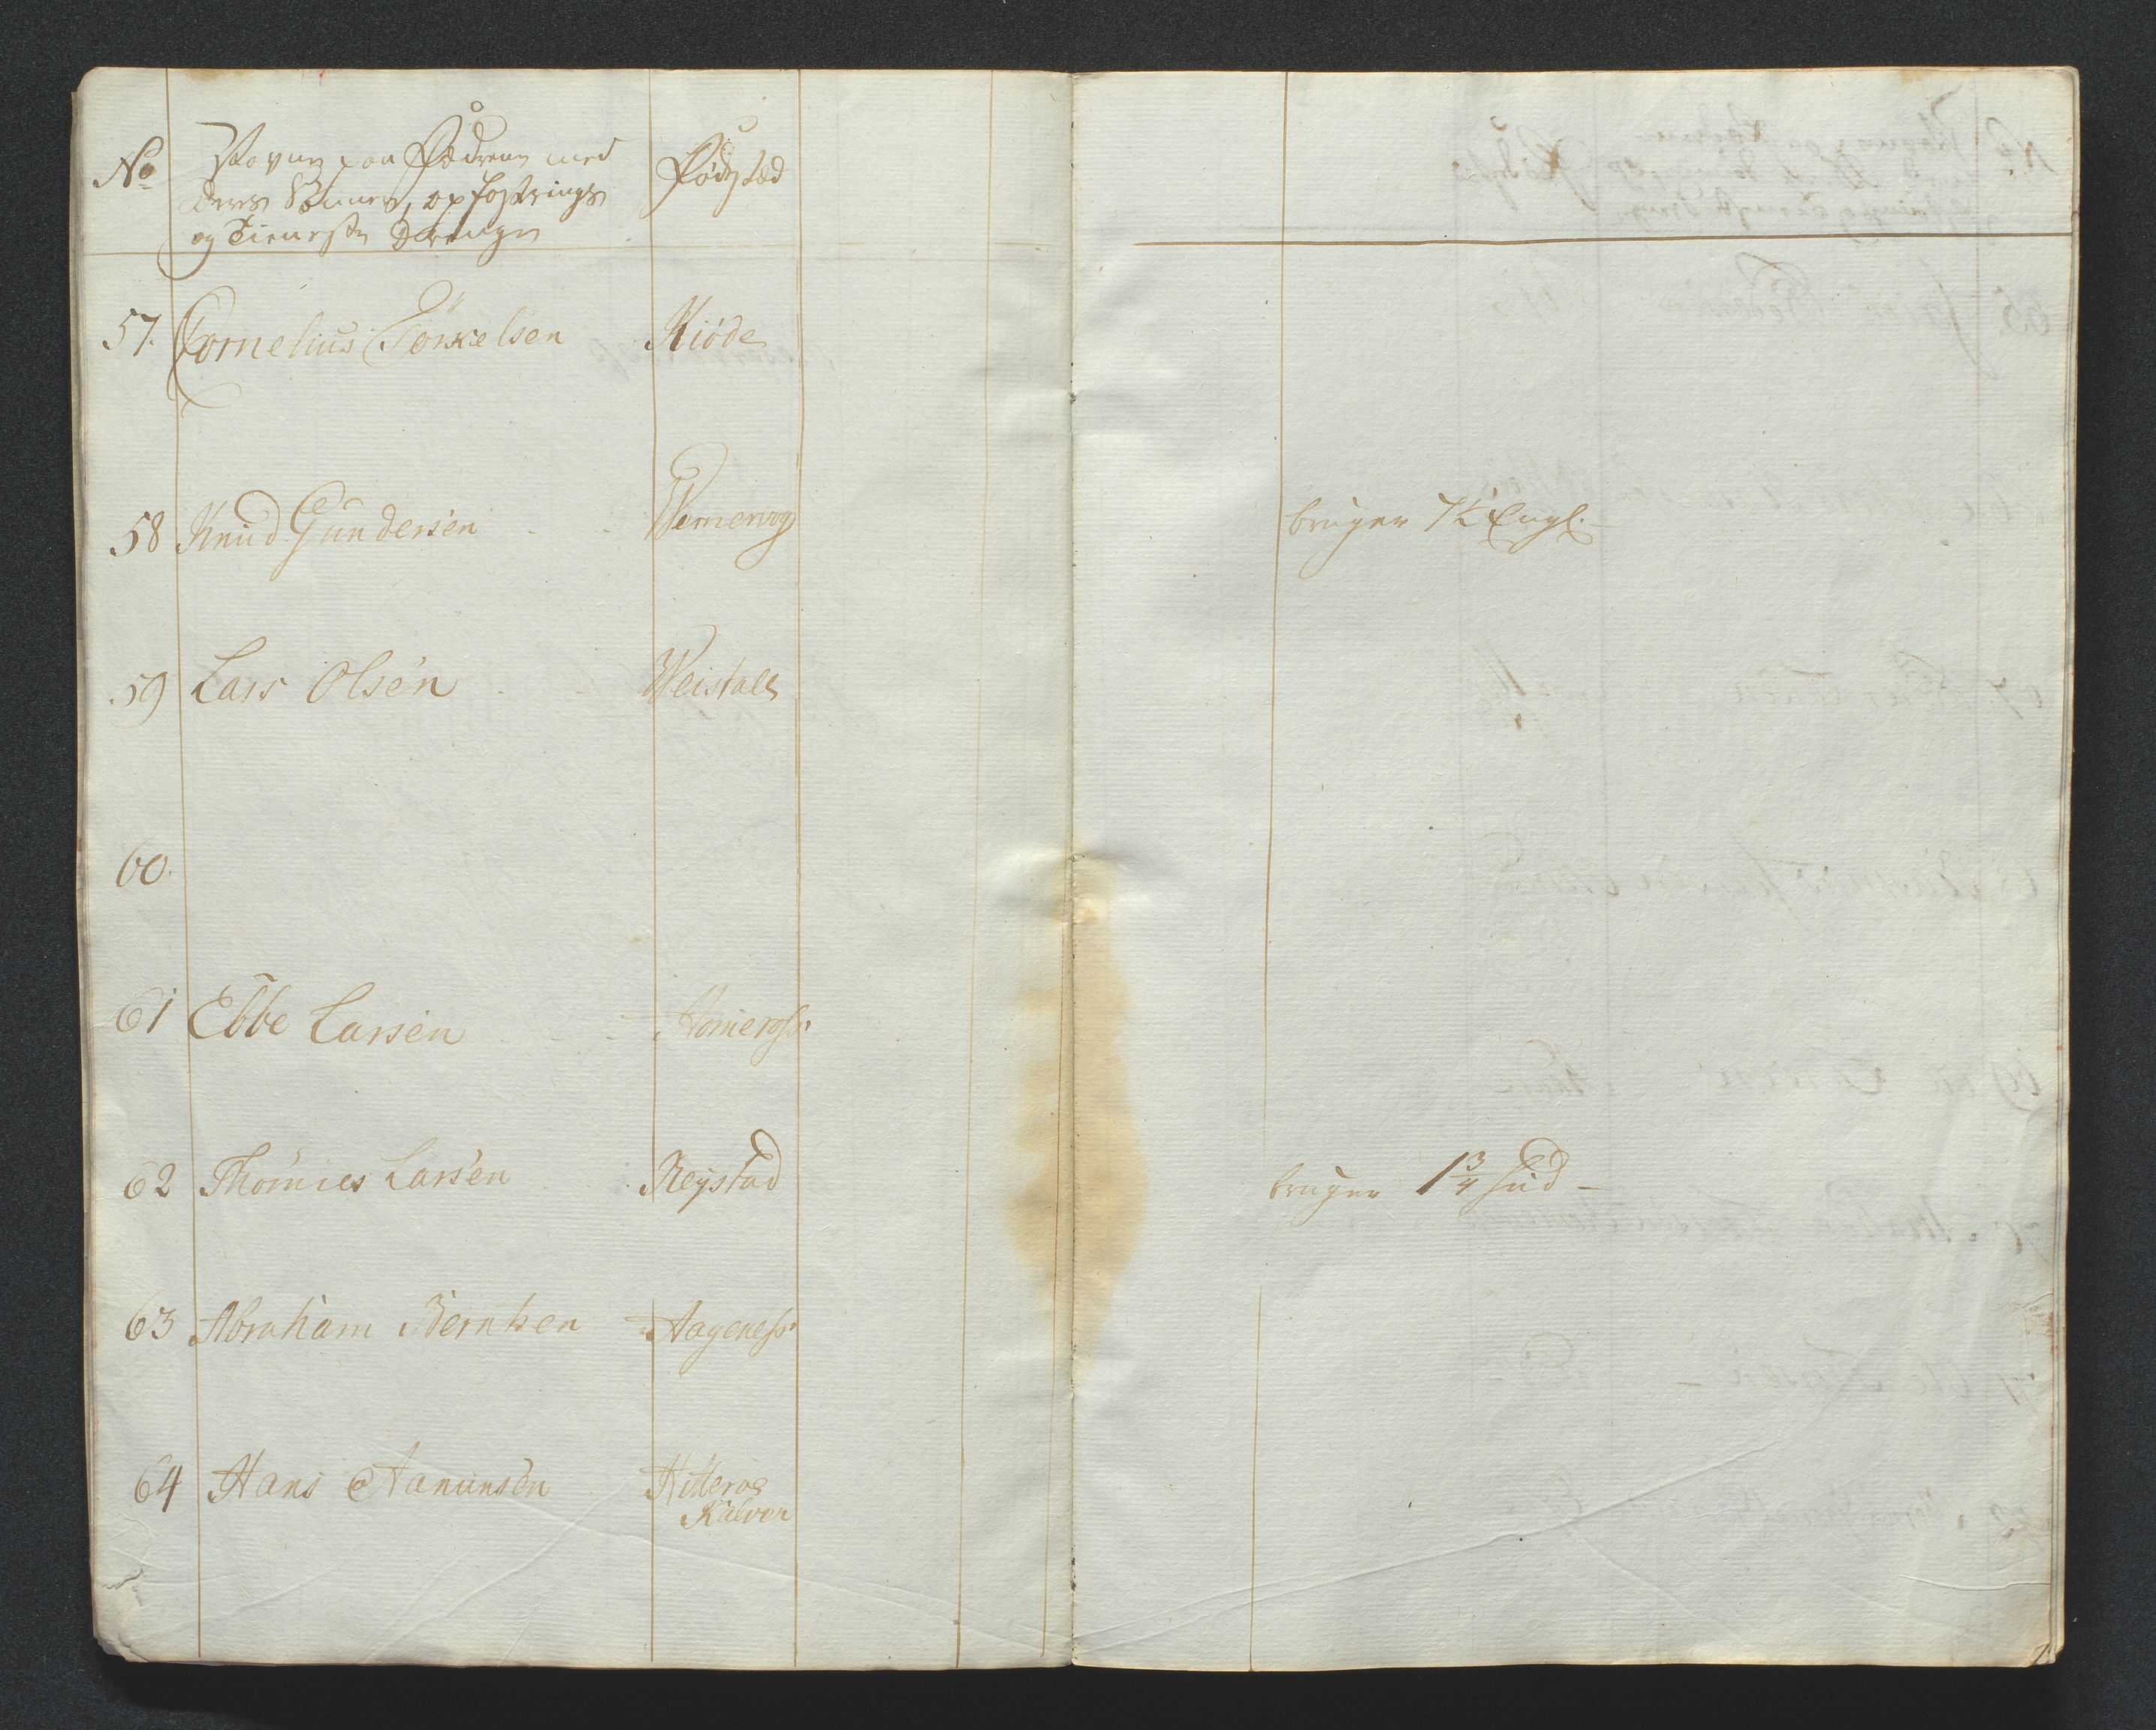 No
Navne paa Fædrene med
deres Sönner, opfostrings
og Tieneste Drenge
Fødested
57. Cornelius Törkelsen Kiöde
58 Knud Gundersen Wernevog bruger 7 k Engl.
59 Lars Olsen Weistad
60.
61 Ebbe Larsen
62 Thomes Larsen Regstad bruger 1 3/4 hud -
63 Abraham Berntsen Aageness
64 Hans Aanunsen Hitteroe
Kalven